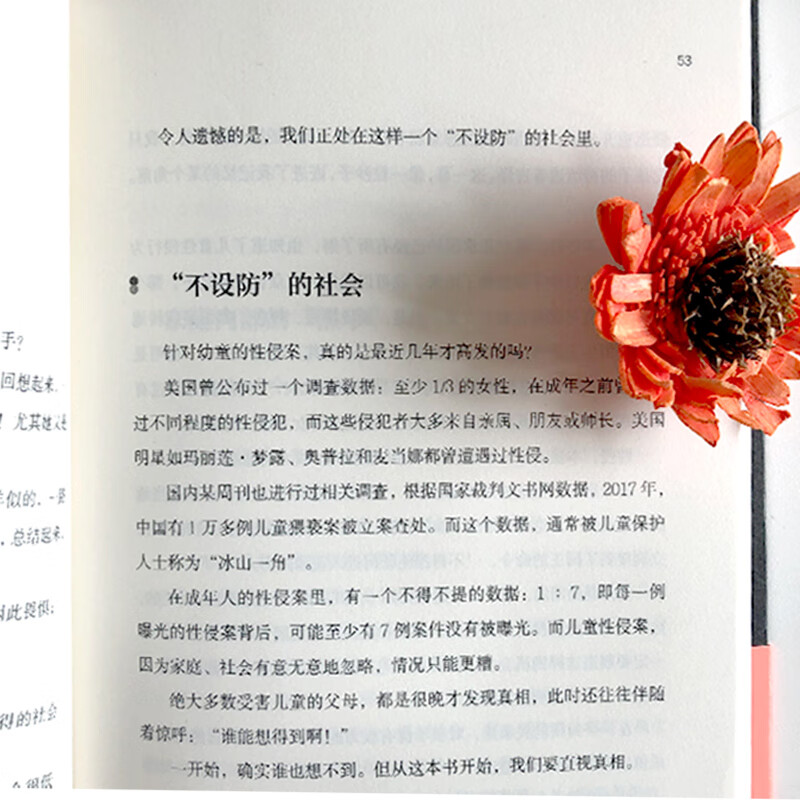 手？
回想起来，
！尤其她又
羊似的，
，总结起来
因此畏惧；
得的社会
53
令人遗憾的是，我们正处在这样一个“不设防”的社会里。
“不设防”的社会
针对幼童的性侵案，真的是最近几年才高发的吗？
美国曾公布过一个调查数据：至少1/3的女性，在成年之前
过不同程度的性侵犯，而这些侵犯者大多来自亲属、朋友或师长。美国
明星如玛丽莲·梦露、奥普拉和麦当娜都曾遭遇过性侵。
国内某周刊也进行过相关调查，根据国家裁判文书网数据，2017年，
中国有1万多例儿童猥亵案被立案查处。而这个数据，通常被儿童保护
人士称为“冰山一角”。
在成年人的性侵案里，有一个不得不提的数据：1：7，即每一例
曝光的性侵案背后，可能至少有7例案件没有被曝光。而儿童性侵案，
因为家庭、社会有意无意地忽略，情况只能更糟。
绝大多数受害儿童的父母，都是很晚才发现真相，此时还往往伴随
着惊呼：“谁能想得到啊！”
一开始，确实谁也想不到。但从这本书开始，我们要直视真相。